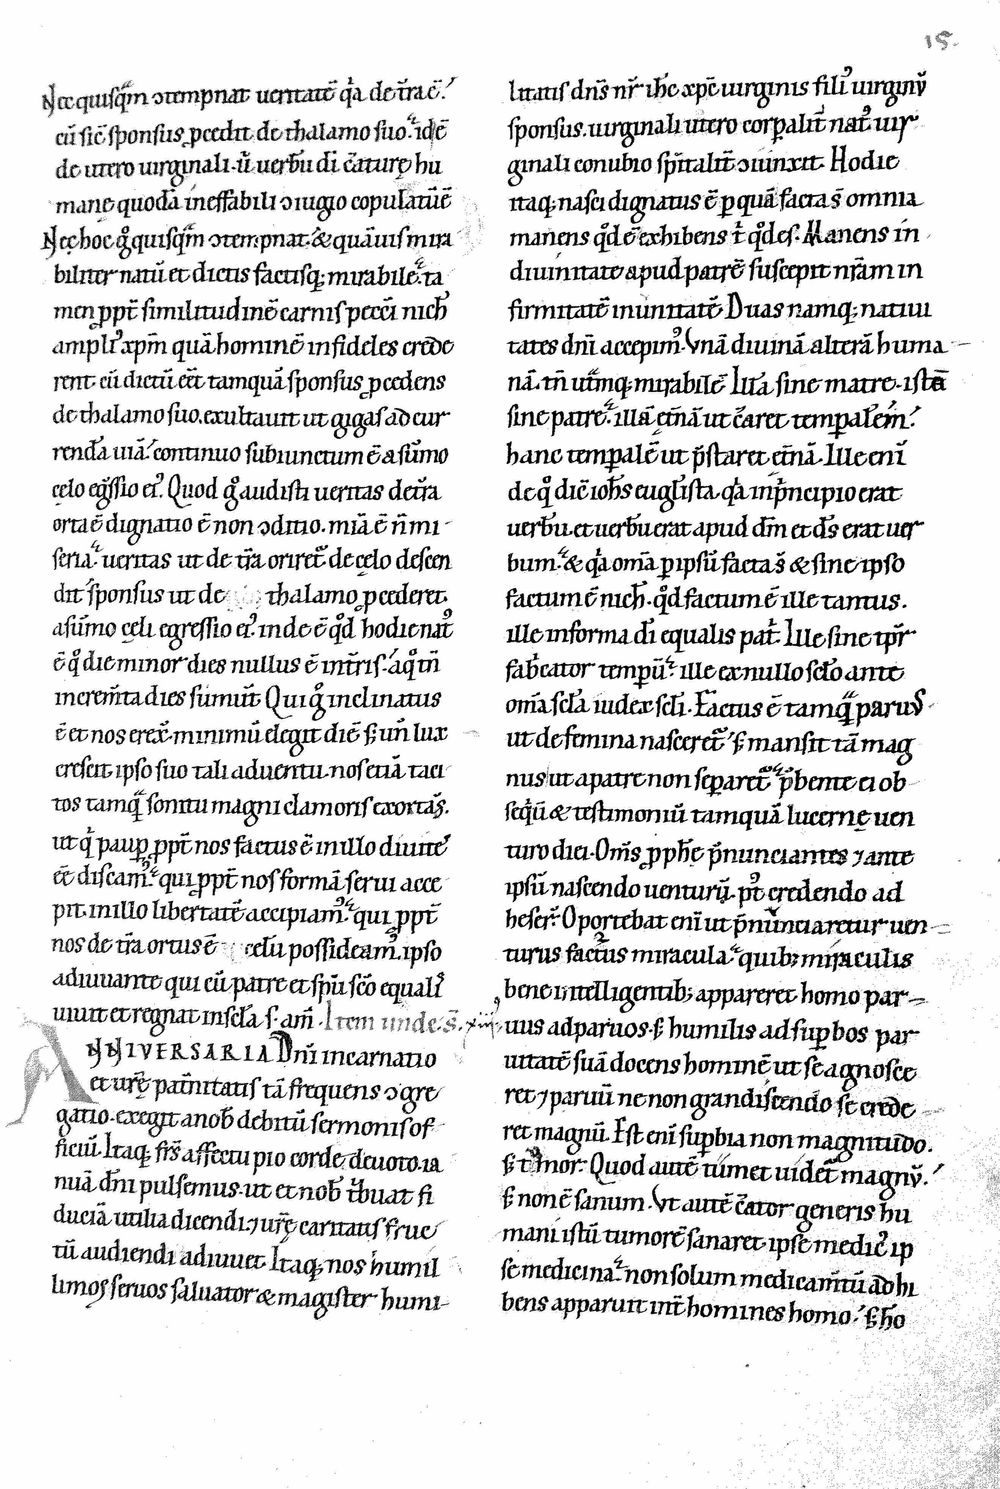 15.
Nec quisq̄m ↄtempnat ueritatē q̇a de t̄ra ē.
cū sic̄ sponsus ꝓcedit de thalamo suo. id ē
de utero uirginali. ū uerbū di c̄ature hu
mane quodā ineffabili ↄiugio copulatū ē
Nec hoc g̊ quisq̄m ↄtempnat. & quāuis mira
biliter natū et dictis factisq; mirabilē. ta
men ꝓpt̄ similitudinē carnis pecc̄i nich̄
ampli᾽ xp̄m quā hominē infideles crede
rent. cū dictū eēt tamquā sponsus ꝓcedens
de thalamo suo. exultauit ut gigas ad cur
rendā uiā. continuo subiunctum ē a sūmo
celo eḡssio ei᾽. Quod g̊ audisti ueritas de t̄ra
orta ē dignatio ē non ↄditio. mīa ē n̄ mi
seria. ueritas ut de t̄ra oriret᷑ de celo descen
dit sponsus ut de thalamo ꝓcederet.
a sūmo celi egressio ei᾽. inde ē q̊d hodie nat᾽
ē q̊ die minor dies nullus ē in t̄ris. a q̊ t̄n
increm̄ta dies sumūt Qui g̊ inclinatus
ē et nos erex̄. minimū elegit diē s; un̄ lux
crescit ipso suo tali aduentu. nos etiā taci
tos tamq̄ sonitu magni clamoris exortās.
ut q̇ paup ꝓpt̄ nos factus ē in illo diuite᾽
eē discam᾽. qui ꝓpt̄ nos formā serui acce
pit. in illo libertatē accipiam᾽. qui ꝓpt̄
nos de t̄ra ortus ē celū possideam᾽. ipso
adiuuante qui cū patre et sp̄u sc̄o equalit̄
uiuit et regnat in sc̄la s. am̄. Item unde. s̄. xiii.
ANNIVERSARIA Dn̄i incarnatio
et ur̄e pat̄nitatis tā frequens ↄgre
gatio. exegit a nob̄ debitū sermonis of
ficiū. Itaq; fr̄s affectu pio corde deuoto. ia
nuā dn̄i pulsemus. ut et nob̄ t̄buat fi
duciā utilia dicendi. ⁊ ur̄e caritatis fruc
tū audiendi adiuuet. Itaq; nos humil
limos seruos saluator & magister humi-
litatis dn̄s nr̄ ih̄c xp̄c uirginis fili᾽ uirginū
sponsus. uirginali utero corꝑalit̄ nat᾽ uir
ginali conubio sp̄italit̄ ↄiunxit. Hodie
itaq; nasci dignatus ē ꝑ quā facta s̄ omnia
manens q̊d ē exhibens t̄ q̊d es. Manens in
diuinitate apud patrē suscepit nr̄am in
firmitatē in unitatē. Duas namq; natiui
tates dn̄i accepim᾽. Vnā diuinā alterā huma
nā. tn̄ utāmq; mirabilē. Illā sine matre. istā
sine patre. illā et̄nā ut c̄aret temporalem.
hanc temporalē ut p̄staret et̄nā. Ille eni
de q̊ dic̄ ioh̄s euḡlista. q̇a in p̄ncipio erat
uerbū. et uerbū erat apud dm̄ et ds̄ erat uer
bum. & q̇a om̄a ꝑ ipsū facta s̄ & sine ipso
factum ē nich̄. q̊d factum ē ille tantus.
ille in forma di equalis pat̄. Ille sine tp̄r
fab̄cator temporū. ille ex nullo sc̄lo ante
om̄a sc̄la iudex sc̄li. Factus ē tamq̄ paruus
ut de femina nasceret᷑. s; mansit tā mag
nus ut a patre non separaret᷑. p̄bente ei ob
seq̄ū & testimoniū tamquā lucerne uen
turo diei. Om̄s ꝓph̄e p̄nunciantes ⁊ ante
ipsū nascendo uenturū. p᾽t credendo ad
heser̄. Oportebat eni ut p̄nunciaretur uen
turus factus miracula. quib; miraculis
bene intelligentib; appareret homo par
uus ad paruos. s; humilis ad sup̄bos par
uitatē suā docens hominē ut se agnosce
ret ⁊ paruū ne non grandiscendo se crede
ret magnū. Est eni sup̄bia non magnitudo.
s; tumor. Quod autē tumet uidet᷑ magnū.
s; non ē sanum. Vt autē c̄ator generis hu
mani istū tumorē sanaret. ipse medic᾽ ip
se medicina. non solum medicam̄tū adhi
bens apparuit int̄ homines homo. s; ho